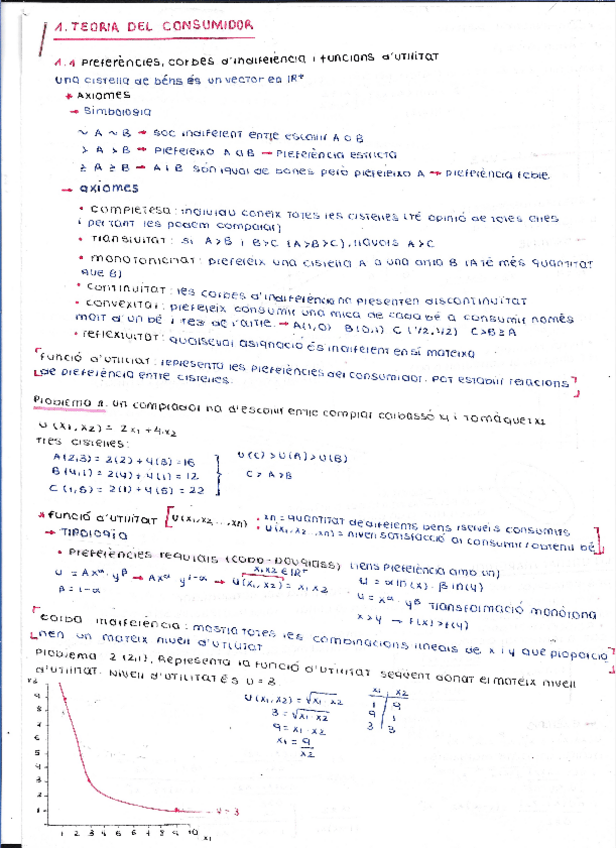 1. TEORIA DEL CONSUMIDOR
1.1 Preferències, corbes d'indiferència i funcions d'utilitat
Una cistella de béns és un vector en IR⁺
* AXIOMES
→ Simbologia
∼ A ∼ B → soc indiferent entre escollir A o B
> A > B → Prefereixo A a B → Preferència estricta
≥ A ≥ B → A i B són igual de bones però prefereixo A → preferència feble
→ axiomes
• completesa: individu coneix totes les cistelles (té opinió de totes elles
i per tant les podem comparar)
• Transitivitat: si A>B i B>C (A>B>C), llavors A>C
• monotonicitat: prefereix una cistella A a una altra B (A té més quantitat
que B)
• Continuitat: les corbes d'indiferència no presenten discontinuïtat
• convexitat: prefereix consumir una mica de cada bé a consumir només
molt d'un bé i res de l'altre. → A(1,0) B(0,1) C(1/2,1/2) C>B≥A
• reflexivitat: qualsevol asignació és indiferent en si mateixa
Funció d'utilitat: representa les preferències del consumidor. Pot establir relacions
de preferència entre cistelles.
Problema 1. Un comprador ha d'escollir entre comprar carbassó x1 i tomàquet x2
U(x1, x2) = 2x1 + 4x2
Tres cistelles:
A(2,3) = 2(2) + 4(3) = 16 U(C) > U(A) > U(B)
B(4,1) = 2(4) + 4(1) = 12 C > A > B
C(1,5) = 2(1) + 4(5) = 22
* Funció d'utilitat [U(x1, x2, ..., xn) • xn = quantitat de diferents béns i serveis consumits
• U(x1, x2, ..., xn) = nivell satisfacció al consumir / obtenir bé]
→ Tipologia
• Preferències regulars (Cobb-Douglass) (tens preferència amb un)
x1 x2 ∈ IR⁺
U = Ax^α · y^β → Ax^α y^1-α → U(x1, x2) = x1 x2 U = α ln(x) · β ln(y)
β = 1-α U = x^α · y^β Transformació monòtona
x > y → F(x) > F(y)
Corba indiferència: mostra totes les combinacions lineals de x i y que proporcio
nen un mateix nivell d'utilitat
Problema 2 (2.1). Representa la funció d'utilitat següent donat el mateix nivell
d'utilitat. Nivell d'utilitat és U = 3
U(x1, x2) = √x1 · x2
3 = √x1 · x2
9 = x1 · x2
x1 = 9/x2
x1 x2
1 9
9 1
3 3
x2
9
8
7
6
5
4
3
2
1
U = 3
1 2 3 4 5 6 7 8 9 10 x1